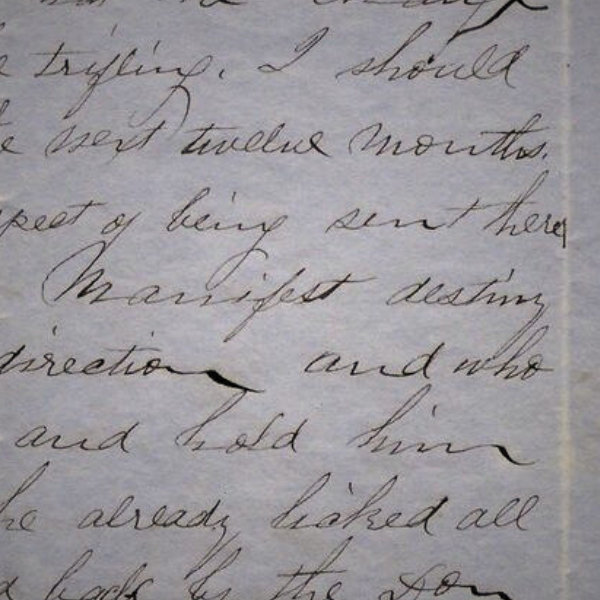 trifling. I should
next twelve months.
pect of being sent there
Manifest destiny
direction and who
and hold him
he already licked all
back by the Don